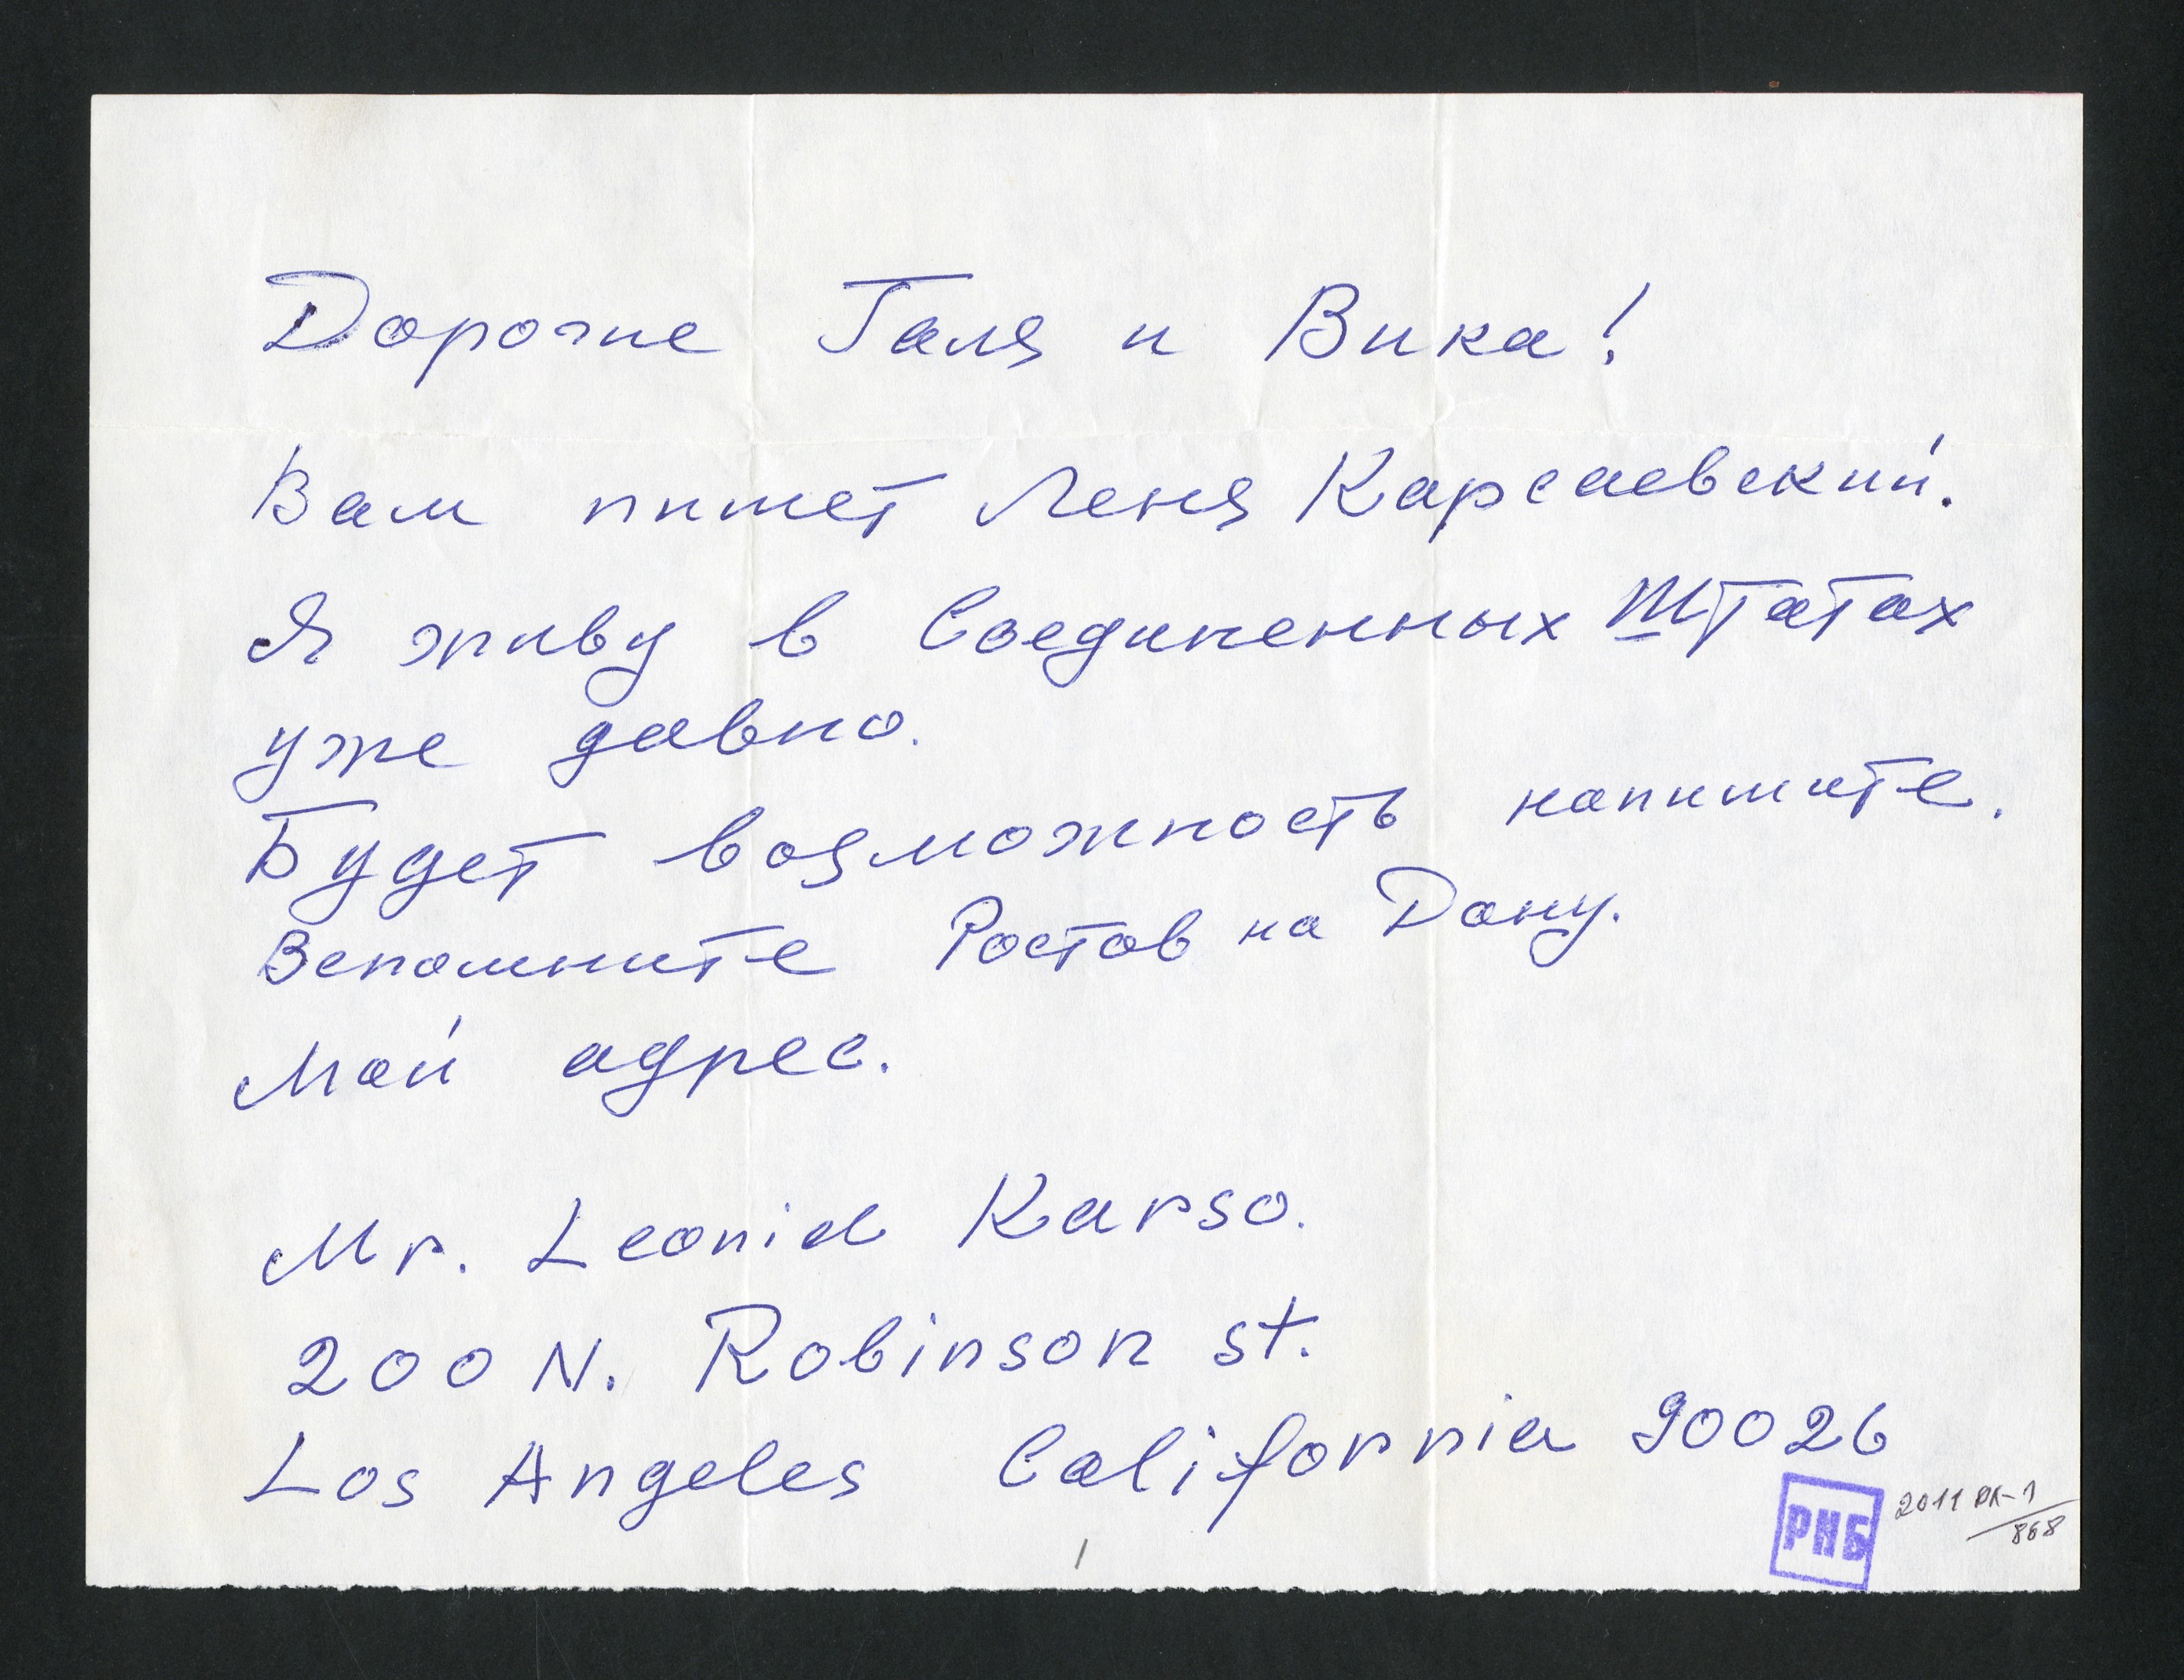 Дорогие Галя и Вика!
Вам пишет Леня Карсаевский.
Я живу в Соединенных Штатах
уже давно.
Будет возможность напишите.
Вспомните Ростов на Дону.
Мой адрес.
Mr. Leonid Karso.
200 N. Robinson st.
Los Angeles California 90026
РНБ
2011 РК-1/868
1